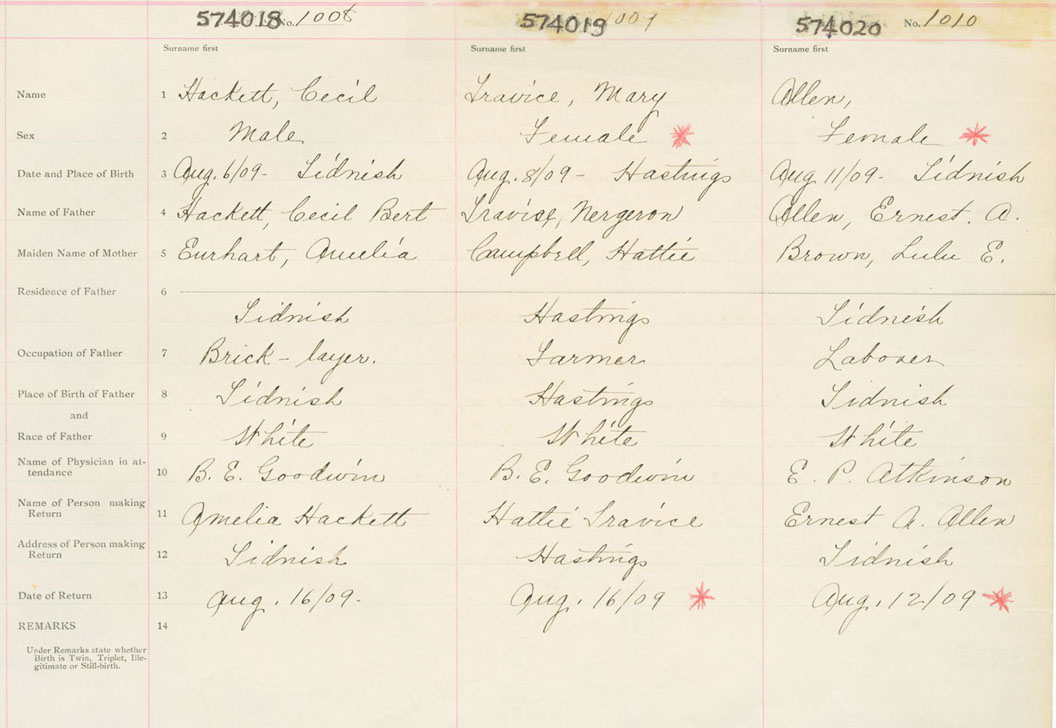 574018 No. 1008 574019 1009 574020 No. 1010
Surname first Surname first Surname first
Name 1 Hackett, Cecil Travice, Mary Allen,
Sex 2 Male Female Female
Date and Place of Birth 3 Aug. 6/09 - Tidnish Aug. 8/09 - Hastings Aug 11/09 - Tidnish
Name of Father 4 Hackett, Cecil Bert Travice, Nergeron Allen, Ernest. A.
Maiden Name of Mother 5 Eurhart, Amelia Campbell, Hattie Brown, Lulu E.
Residence of Father 6
Tidnish Hastings Tidnish
Occupation of Father 7 Brick - layer. Farmer Laborer
Place of Birth of Father 8 Tidnish Hastings Tidnish
and
Race of Father 9 White White White
Name of Physician in at-
tendance 10 B. E. Goodwin B. E. Goodwin E. P. Atkinson
Name of Person making
Return 11 Amelia Hackett Hattie Travice Ernest A. Allen
Address of Person making
Return 12 Tidnish Hastings Tidnish
Date of Return 13 Aug. 16/09 - Aug. 16/09 Aug. 12/09
REMARKS 14
Under Remarks state whether
Birth is Twin, Triplet, Ille-
gitimate or Still-birth.